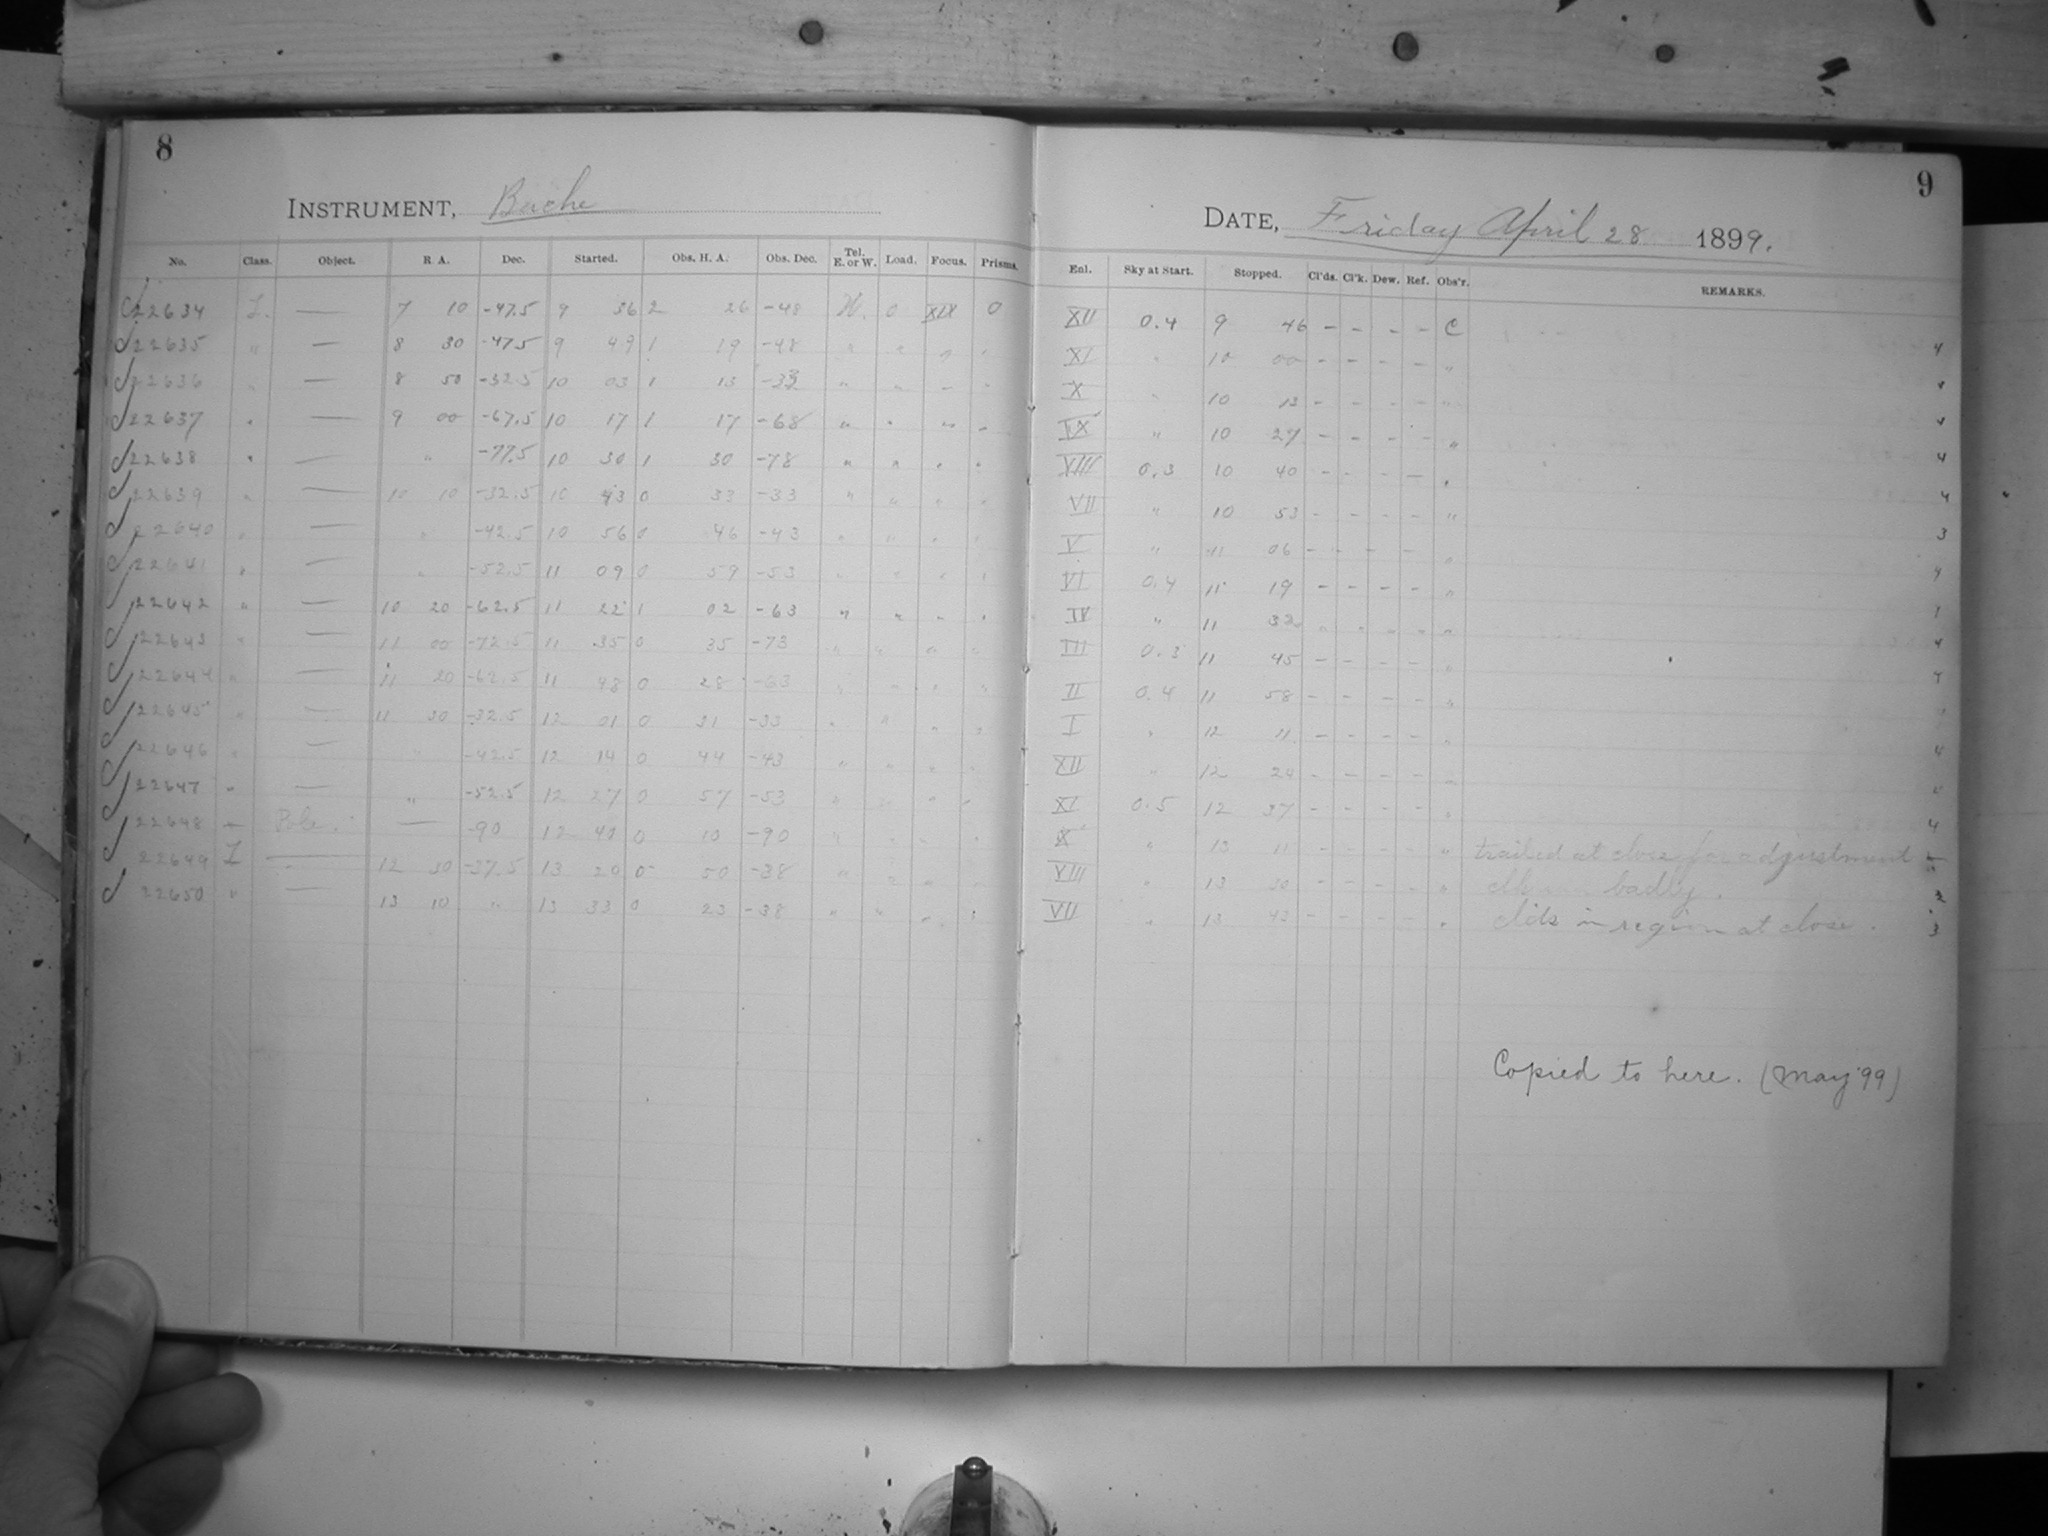 8
INSTRUMENT, Bache
No. Class. Object. R. A. Dec. Started. Obs. H. A. Obs. Dec. Tel. E. or W. Load. Focus. Prisms.
22634 — 7 10 -47.5 9 36 2 26 -48 W. 0 XIX 0
22635 " — 8 30 -47.5 9 49 1 19 -48 " " " "
22636 " — 8 50 -32.5 10 03 1 13 -33 " " " "
22637 " — 9 00 -67.5 10 17 1 17 -68 " " " "
22638 " — " -77.5 10 30 1 30 -78 " " " "
22639 " — 10 10 -32.5 10 43 0 33 -33 " " " "
22640 " — " -42.5 10 56 0 46 -43 " " " "
22641 " — " -52.5 11 09 0 59 -53 " " " "
22642 " — 10 20 -62.5 11 22 1 02 -63 " " " "
22643 " — 11 00 -72.5 11 35 0 35 -73 " " " "
22644 " — 11 20 -62.5 11 48 0 28 -63 " " " "
22645 " — 11 30 -32.5 12 01 0 31 -33 " " " "
22646 " — " -42.5 12 14 0 44 -43 " " " "
22647 " — " -52.5 12 27 0 57 -53 " " " "
22648 — Pole. — -90 12 0 10 -90 " " " "
22649 — 12 30 -37.5 13 20 0 50 -38 " " " "
22650 " — 13 10 " 13 33 0 23 -38 " " " "
9
DATE, Friday April 28 1899.
Enl. Sky at Start. Stopped. Cl'ds. Cl'k. Dew. Ref. Obs'r. REMARKS.
XII 0.4 9 46 - - - - C
XI " 10 00 - - - - " 4
X " 10 13 - - - - " 4
IX " 10 27 - - - - " 4
VIII 0.3 10 40 - - - - " 4
VII " 10 53 - - - - " 4
V " 11 06 - - - - " 3
VI 0.4 11 19 - - - - " 4
IV " 11 32 " " " " "
III 0.3 11 45 - - - - " 4
II 0.4 11 58 - - - - "
I " 12 11 - - - - "
XII " 12 24 - - - - " 4
XI 0.5 12 37 - - - - "
X " 13 11 - - - - " trailed at close for adjustment
VIII " 13 30 - - - - " badly. 2
VII " 13 43 - - - - " cl'ds in region at close. 3
Copied to here. (May '99)